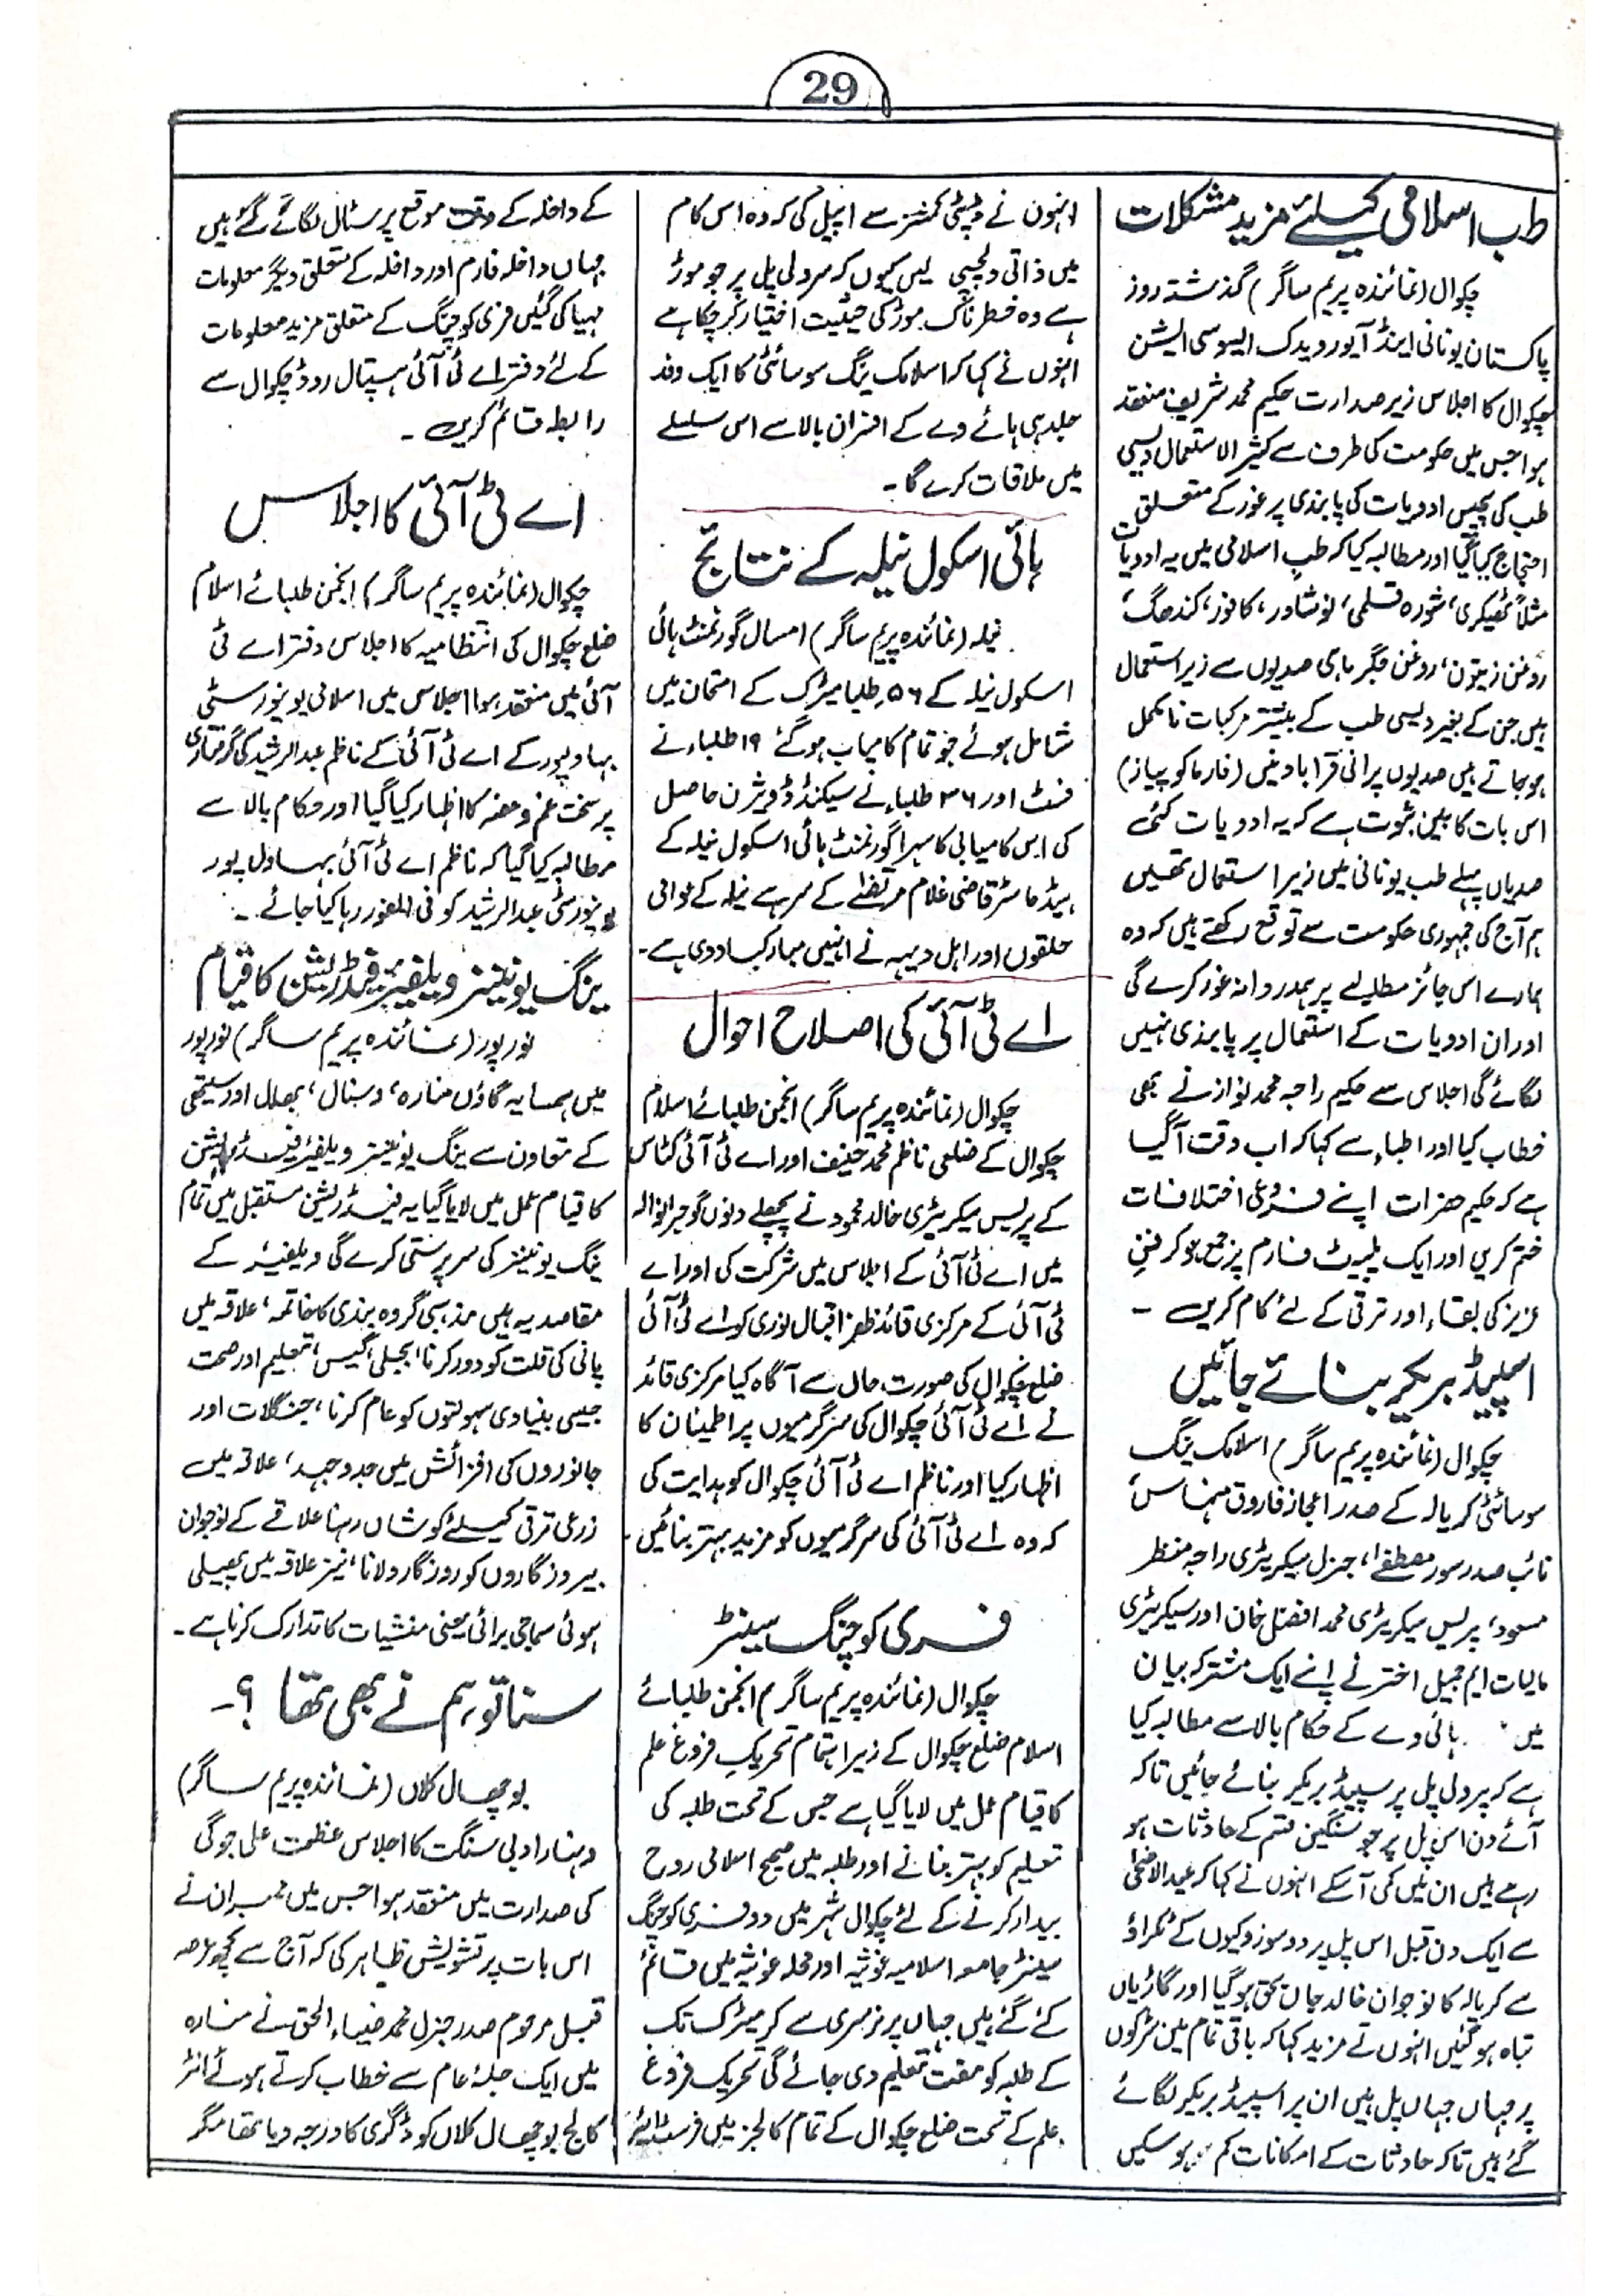 29
طب اسلامی کیلئے مزید مشکلات
چکوال (نمائندہ پریم ساگر) گذشتہ روز
پاکستان یونانی اینڈ آیورویدک ایسوسی ایشن
چکوال کا اجلاس زیر صدارت حکیم محمد شریف منعقد
ہوا جس میں حکومت کی طرف سے کثیر الاستعمال دیسی
طب کی پچیس ادویات کی پابندی پر غور کے متعلق
احتجاج کیا گیا اور مطالبہ کیا کہ طب اسلامی میں یہ ادویات
مثلاً ٹھیکری، شورہ قلمی، نوشادر، کافور، گندھک،
روغن زیتون، روغن جگر ماہی صدیوں سے زیر استعمال
ہیں جن کے بغیر دیسی طب کے بیشتر مرکبات نامکمل
ہو جاتے ہیں صدیوں پرانی قرابادینیں (فارماکوپیاز)
اس بات کا بین ثبوت ہے کہ یہ ادویات کئی
صدیاں پہلے طب یونانی میں زیر استعمال تھیں
ہم آج کی جمہوری حکومت سے توقع رکھتے ہیں کہ وہ
ہمارے اس جائز مطالبے پر ہمدردانہ غور کرے گی
اور ان ادویات کے استعمال پر پابندی نہیں
لگائے گی اجلاس سے حکیم راجہ محمد نواز نے بھی
خطاب کیا اور اطباء سے کہا کہ اب وقت آگیا
ہے کہ حکیم حضرات اپنے فروعی اختلافات
ختم کریں اور ایک پلیٹ فارم پر جمع ہو کر فن
عزیز کی بقاء اور ترقی کے لئے کام کریں ۔
اسپیڈ بریکر بنائے جائیں
چکوال (نمائندہ پریم ساگر) اسلامک ینگ
سوسائٹی کریالہ کے صدر اعجاز فاروق منہاس
نائب صدر سرور مصطفےٰ، جنرل سیکریٹری راجہ منظر
مسعود، پریس سیکریٹری محمد افضل خان اور سیکریٹری
مالیات ایم جمیل اختر نے اپنے ایک مشترکہ بیان
میں ہائی وے کے حکام بالا سے مطالبہ کیا
ہے کہ پردلی پل پر سپیڈ بریکر بنائے جائیں تاکہ
آئے دن اس پل پر جو سنگین قسم کے حادثات ہو
رہے ہیں ان میں کمی آسکے انہوں نے کہا کہ عیدالاضحیٰ
سے ایک دن قبل اس پل پر دو سوزوکیوں کے ٹکراؤ
سے کریالہ کا نوجوان خالد جاں بحق ہو گیا اور گاڑیاں
تباہ ہو گئیں انہوں نے مزید کہا کہ باقی تمام مین سڑکوں
پر جہاں جہاں پل ہیں ان پر اسپیڈ بریکر لگائے
گئے ہیں تاکہ حادثات کے امکانات کم ہو سکیں
انہوں نے ڈپٹی کمشنر سے اپیل کی کہ وہ اس کام
میں ذاتی دلچسپی لیں کیوں کہ سردلی پل پر جو موڑ
ہے وہ خطرناک موڑ کی حیثیت اختیار کر چکا ہے
انہوں نے کہا کہ اسلامک ینگ سوسائٹی کا ایک وفد
جلد ہی ہائے وے کے افسران بالا سے اس سلسلے
میں ملاقات کرے گا ۔
ہائی اسکول نیلہ کے نتائج
نیلہ (نمائندہ پریم ساگر) امسال گورنمنٹ ہائی
اسکول نیلہ کے ۵۶ طلبا میٹرک کے امتحان میں
شامل ہوئے جو تمام کامیاب ہو گئے ۱۹ طلباء نے
فسٹ اور ۳۶ طلباء نے سیکنڈ ڈویژن حاصل
کی اس کامیابی کا سہرا گورنمنٹ ہائی اسکول نیلہ کے
ہیڈ ماسٹر قاضی غلام مرتضےٰ کے سر ہے نیلہ کے عوامی
حلقوں اور اہل دیہہ نے انہیں مبارکباد دی ہے ۔
اے ٹی آئی کی اصلاح احوال
چکوال (نمائندہ پریم ساگر) انجمن طلبائے اسلام
چکوال کے ضلعی ناظم محمد حنیف اور اے ٹی آئی کٹاس
کے پریس سیکریٹری خالد محمود نے پچھلے دنوں گوجرانوالہ
میں اے ٹی آئی کے اجلاس میں شرکت کی اور اے
ٹی آئی کے مرکزی قائد ظفر اقبال نوری کو اے ٹی آئی
ضلع چکوال کی صورت حال سے آگاہ کیا مرکزی قائد
نے اے ٹی آئی چکوال کی سرگرمیوں پر اطمینان کا
اظہار کیا اور ناظم اے ٹی آئی چکوال کو ہدایت کی
کہ وہ اے ٹی آئی کی سرگرمیوں کو مزید بہتر بنائیں ۔
فری کوچنگ سینٹر
چکوال (نمائندہ پریم ساگر) انجمن طلبائے
اسلام ضلع چکوال کے زیر اہتمام تحریک فروغ علم
کا قیام عمل میں لایا گیا ہے جس کے تحت طلبہ کی
تعلیم کو بہتر بنانے اور طلبہ میں صحیح اسلامی روح
بیدار کرنے کے لئے چکوال شہر میں دو فری کوچنگ
سینٹر جامعہ اسلامیہ غوثیہ اور محلہ غوثیہ میں قائم
کئے گئے ہیں جہاں پر نرسری سے لے کر میٹرک تک
کے طلبہ کو مفت تعلیم دی جائے گی تحریک فروغ
علم کے تحت ضلع چکوال کے تمام کالجز میں فرسٹ ائیر
کے داخلہ کے وقت موقع پر سٹال لگائے گئے ہیں
جہاں داخلہ فارم اور داخلہ کے متعلق دیگر معلومات
مہیا کی گئیں فری کوچنگ کے متعلق مزید معلومات
کے لئے دفتر اے ٹی آئی ہسپتال روڈ چکوال سے
رابطہ قائم کریں ۔
اے ٹی آئی کا اجلاس
چکوال (نمائندہ پریم ساگر) انجمن طلبائے اسلام
ضلع چکوال کی انتظامیہ کا اجلاس دفتر اے ٹی
آئی میں منعقد ہوا اجلاس میں اسلامی یونیورسٹی
بہاولپور کے اے ٹی آئی کے ناظم عبدالرشید کی گرفتاری
پر سخت غم و غصہ کا اظہار کیا گیا اور حکام بالا سے
مطالبہ کیا گیا کہ ناظم اے ٹی آئی بہاول پور
یونیورسٹی عبدالرشید کو فی الفور رہا کیا جائے ۔
ینگ یونینز ویلفیئر فیڈریشن کا قیام
نورپور (نمائندہ پریم ساگر) نورپور
میں ہمسایہ گاؤں منارہ، وسنال، بھلال اور سیتھی
کے تعاون سے ینگ یونینز ویلفیئر فیڈریشن
کا قیام عمل میں لایا گیا یہ فیڈریشن مستقبل میں تمام
ینگ یونینز کی سرپرستی کرے گی ویلفیئر کے
مقاصد یہ ہیں مذہبی گروہ بندی کا خاتمہ، علاقہ میں
پانی کی قلت کو دور کرنا، بجلی، گیس، تعلیم اور صحت
جیسی بنیادی سہولتوں کو عام کرنا، جنگلات اور
جانوروں کی افزائش میں جدوجہد، علاقہ میں
زرعی ترقی کیلئے کوشاں رہنا علاقے کے نوجوان
بیروزگاروں کو روزگار دلانا، نیز علاقہ میں پھیلی
ہوئی سماجی برائی یعنی منشیات کا تدارک کرنا ہے ۔
سنا تو ہم نے بھی تھا ؟ ۔
بوچھال کلاں (نمائندہ پریم ساگر)
دہنار ادبی سنگت کا اجلاس عظمت علی جوگی
کی صدارت میں منعقد ہوا جس میں ممبران نے
اس بات پر تشویش ظاہر کی کہ آج سے کچھ عرصہ
قبل مرحوم صدر جنرل محمد ضیاء الحق نے منارہ
میں ایک جلسۂ عام سے خطاب کرتے ہوئے انٹر
کالج بوچھال کلاں کو ڈگری کا درجہ دیا تھا مگر